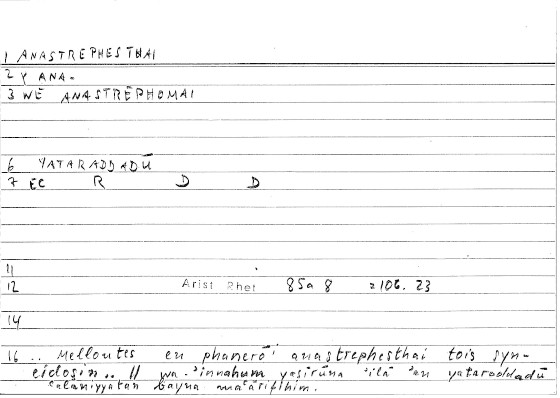 1 ANASTREPHESTHAI
2 Y ANA-
3 WE ANASTREPHOMAI
6 YATARADDADŪ
7 EC R D D
11
12 Arist Rhet 85a 8 =106.23
14
16 .. Mellontes en phanerōi anastrephesthai tois syn-
eidosin.. // wa-'innahum yaṣīrūna 'ilā 'an yataraddadū
ʿalāniyyatan bayna maʿārifihim.